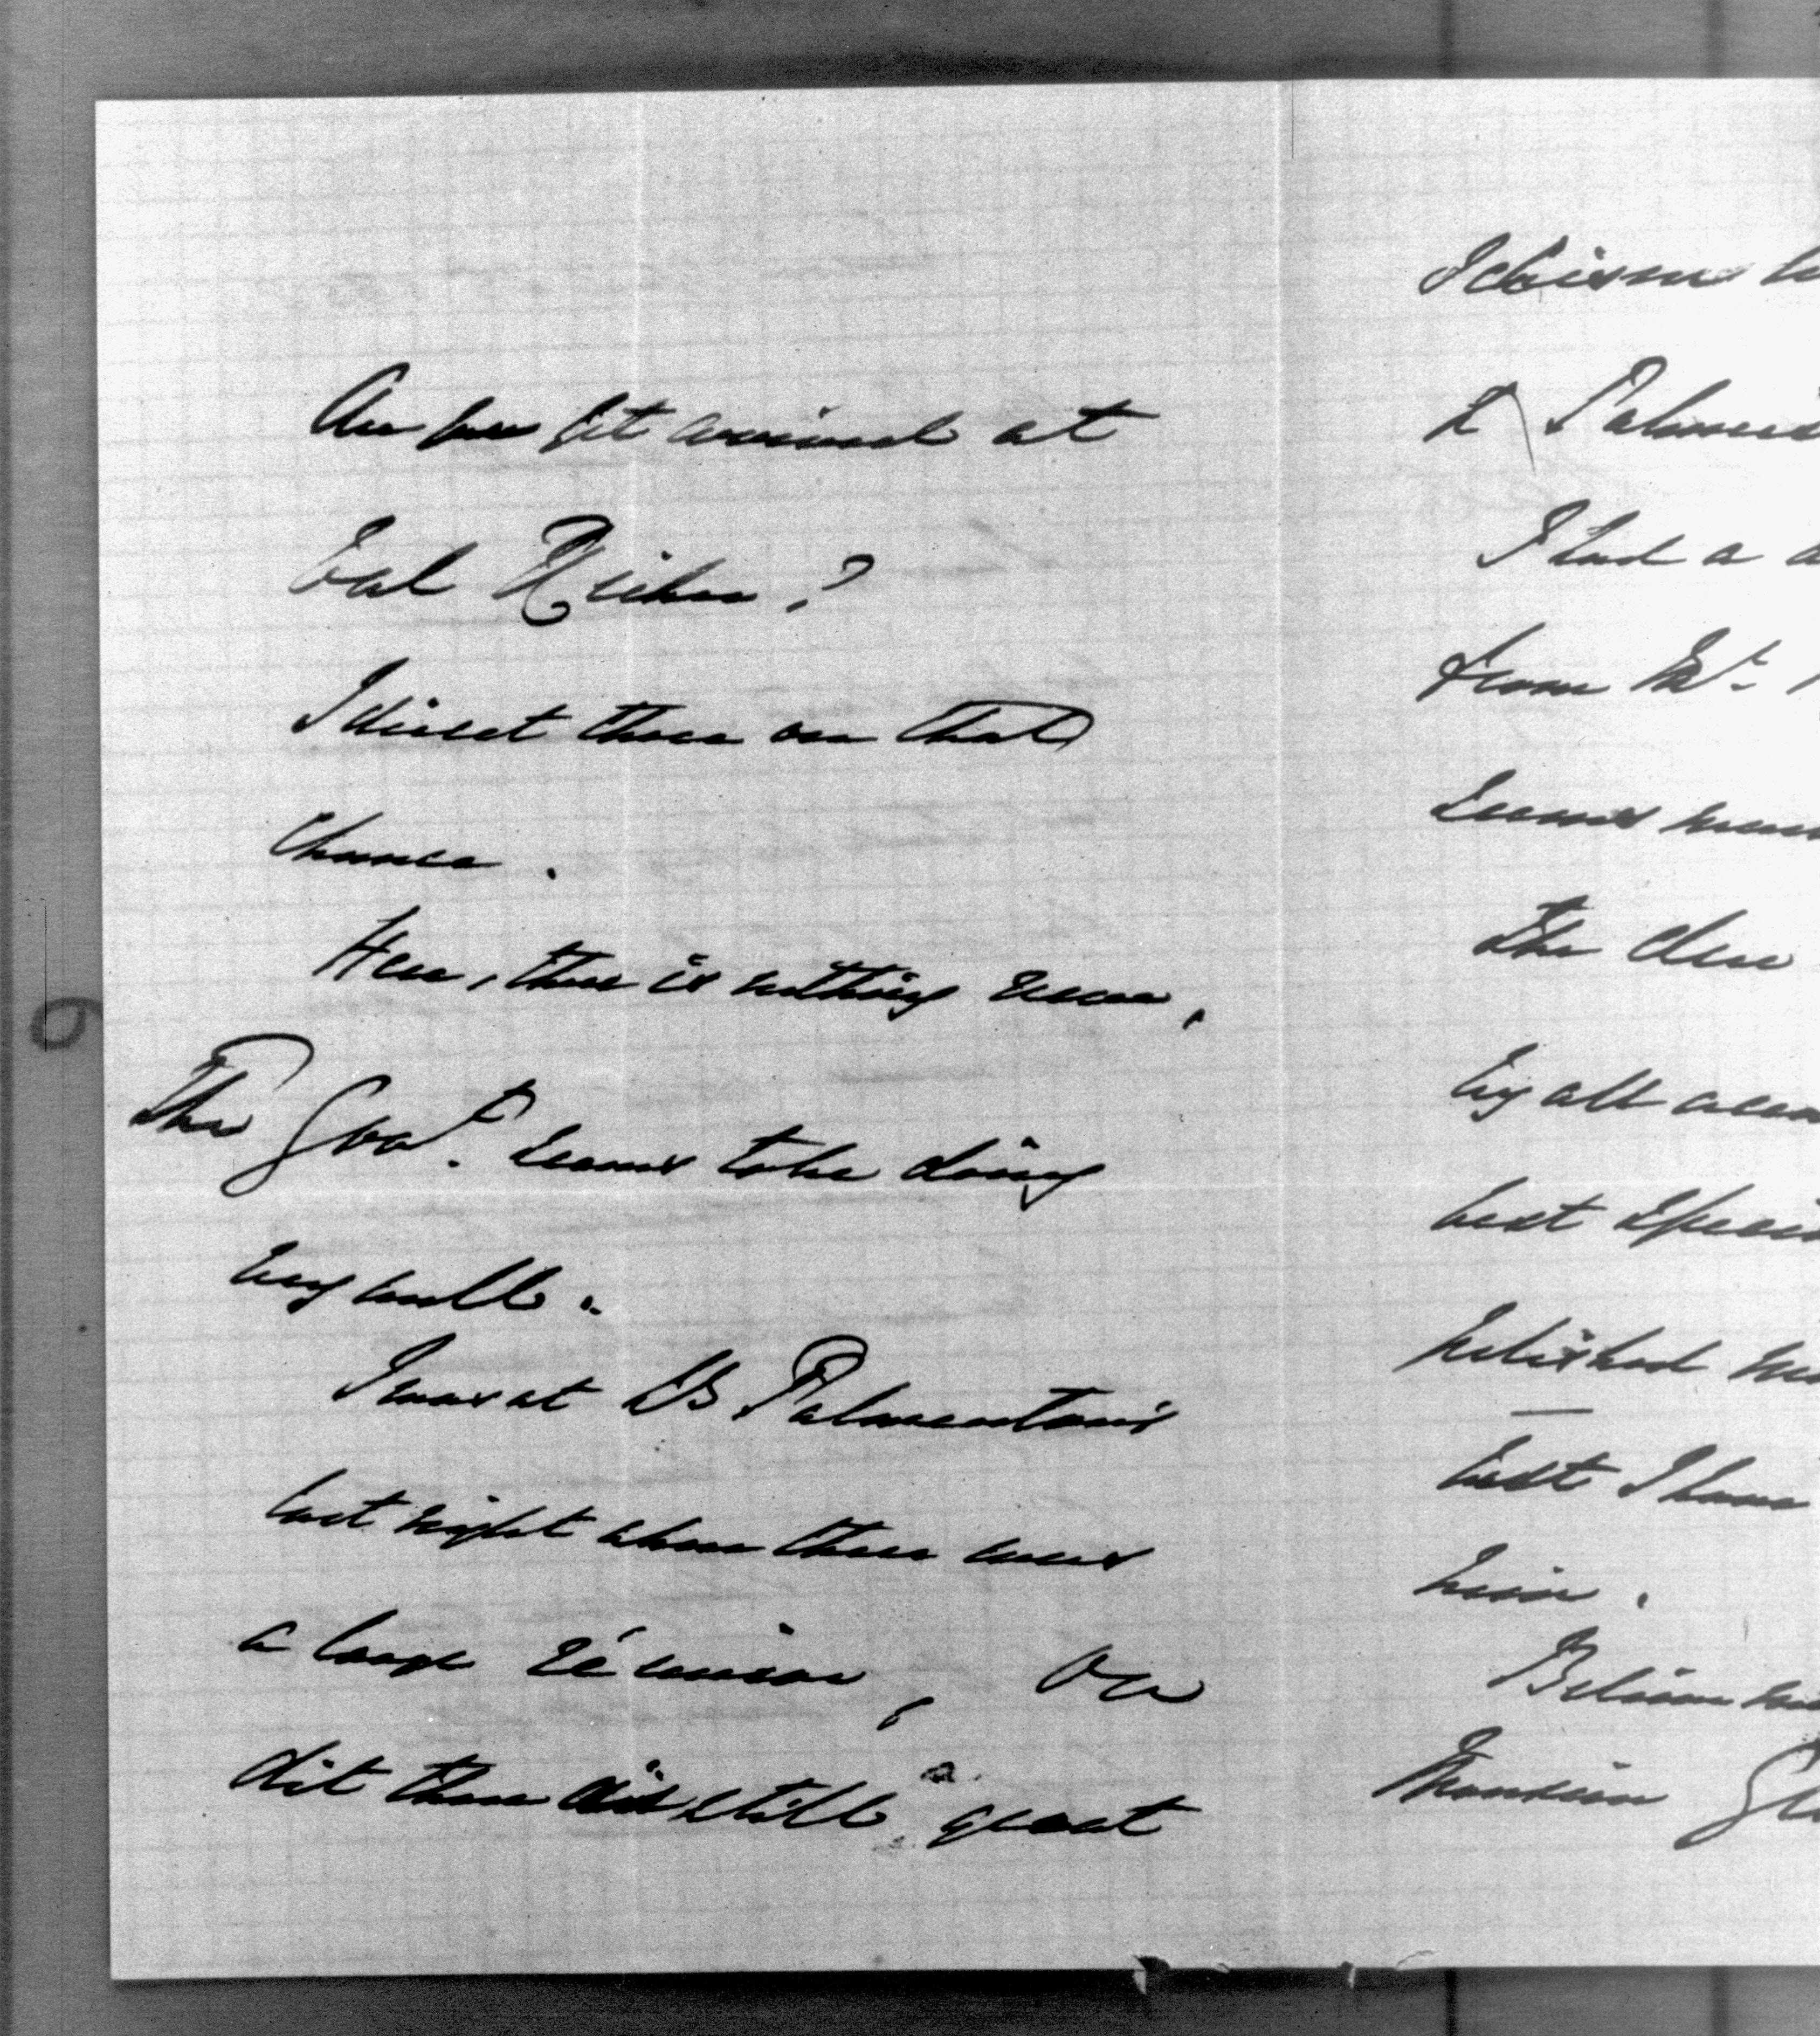 Are you yet arrived at
Val Richer?
I direct these on that
chance.
Here, there is nothing new,
The Govt. seems to be doing
very well.
I was at Ld Palmerston's
last night where there was
a large réunion, on
dit there is still great
Schism
Palmers
I had a
from
seems
The
by all accou
best speci
polished
best I have
him.
Believe
Monsieur